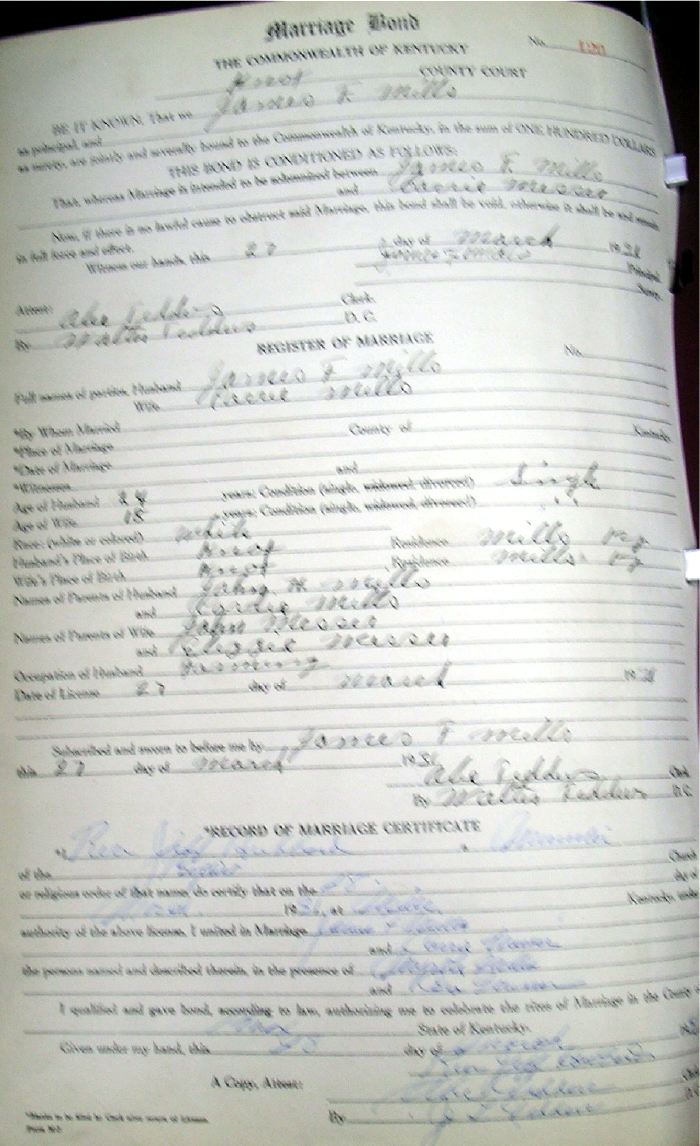 Marriage Bond
No.
THE COMMONWEALTH OF KENTUCKY
Knox COUNTY COURT
BE IT KNOWN, That we James F Mills
as principal, and
as surety, are jointly and severally bound to the Commonwealth of Kentucky, in the sum of ONE HUNDRED DOLLARS
THIS BOND IS CONDITIONED AS FOLLOWS:
That, whereas Marriage is intended to be solemnized between James F. Mills
and Carrie Messer
Now, if there is no lawful cause to obstruct said Marriage, this bond shall be void, otherwise it shall be and remain
in full force and effect.
Witness our hands, this 27 day of March 19
James F Mills Principal
Surety.
Attest: Abe Fedders Clerk.
By Walter Fedders D. C.
REGISTER OF MARRIAGE
No.
Full names of parties, Husband James F Mills
Wife Carrie Mills
*By Whom Married
*Place of Marriage County of Kentucky
*Date of Marriage
*Witnesses and
Age of Husband 24 years; Condition (single, widowed, divorced) Single
Age of Wife 18 years; Condition (single, widowed, divorced) "
Race: (white or colored) White
Husband's Place of Birth Knox Residence Mills Ky
Wife's Place of Birth Knox Residence Mills Ky
Names of Parents of Husband John H Mills
and Mills
Names of Parents of Wife John Messer
and Messer
Occupation of Husband Farming
Date of License 27 day of March 19
Subscribed and sworn to before me by James F Mills
this 27 day of March 19
Abe Fedders Clerk
By Walter Fedders D. C.
*RECORD OF MARRIAGE CERTIFICATE
*I, Rev Jeff Hubbard a Minister
of the Church
or religious order of that name, do certify that on the day of
19 at Mills Kentucky, under
authority of the above license, I united in Marriage James F Mills
and Carrie Messer
the persons named and described therein, in the presence of Mills
and Messer
I qualified and gave bond, according to law, authorizing me to celebrate the rites of Marriage in the County of
Knox State of Kentucky.
Given under my hand, this day of March
Rev Jeff Hubbard
A Copy, Attest:
By